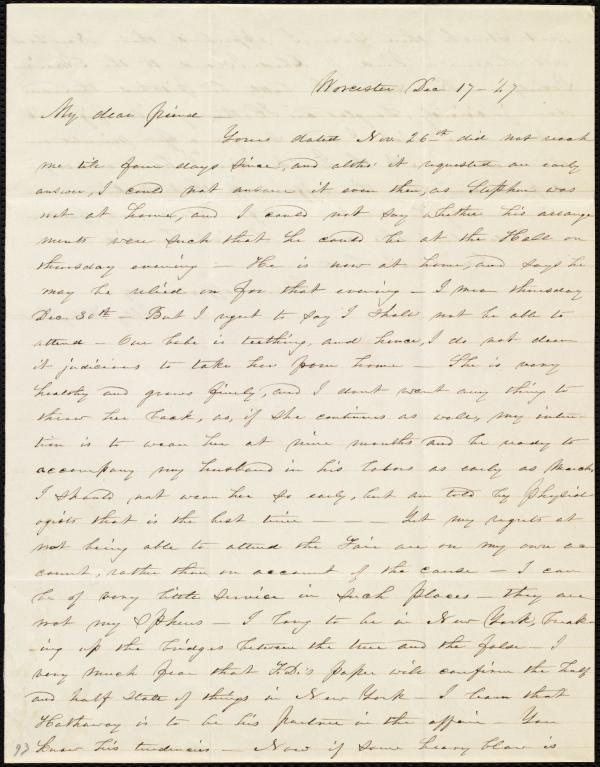 Worcester Dec 17-'47
My dear friend -
Yours dated Nov 26th did not reach
me till four days since, and altho' it requested an early
answer, I could not answer it even then, as Stephen was
not at home, and I could not say whether his arrange
ments were such that he could be at the Hall on
thursday evening - He is now at home, and says he
may be relied on for that evening - I mean thursday
Dec 30th - But I regret to say I shall not be able to
attend - Our babe is teething, and hence, I do not deem
it judicious to take her from home - She is very
healthy and grows finely, and I dont want any thing to
throw her back, as, if she continues as well, my inten-
tion is to wean her at nine months and be ready to
accompany my husband in his labors as early as March,
I should not wean her so early, but am told by physiol
ogists that is the best time - - - Yet my regrets at
not being able to attend the Fair are on my own ac
count, rather than on account of the cause - I can
be of very little service in such places - they are
not my spheres - I long to be in New York, break-
ing up the bridges between the true and the false - I
very much fear that F.D.'s paper will confirm the half
and half state of things in New York - I learn that
Hathaway is to be his partner in the affair You
know his tendencies - Now if some heavy blow is
93